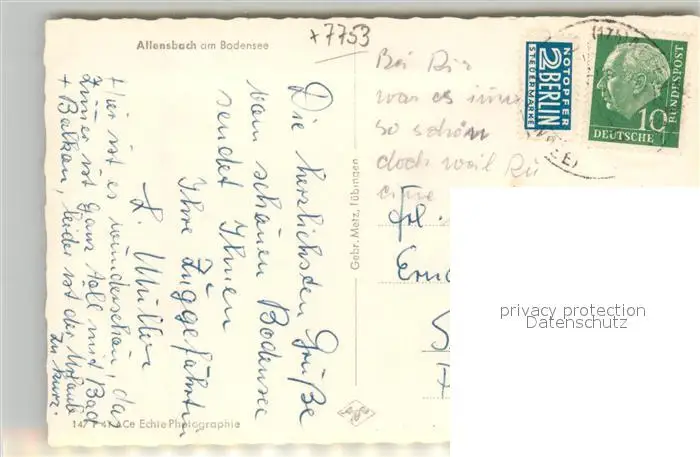 Allensbach am Bodensee
+7753
Die herzlichsten Grüße
vom schönen Bodensee
sendet Ihnen
Ihre Zuggefährtin
L. Müller
Hier ist es wunderschön, das
Zimer ist ganz toll mit Bad
+ Balkon, leider ist der Urlaub
zu kurz.
147 ACe Echte Photographie
Gebr. Metz, Tübingen
Bei Dir
was es
so schön
doch weil Du
eine
Frl.
NOTOPFER
2 BERLIN
STEUERMARKE
DEUTSCHE
BUNDESPOST
10
privacy protection
Datenschutz